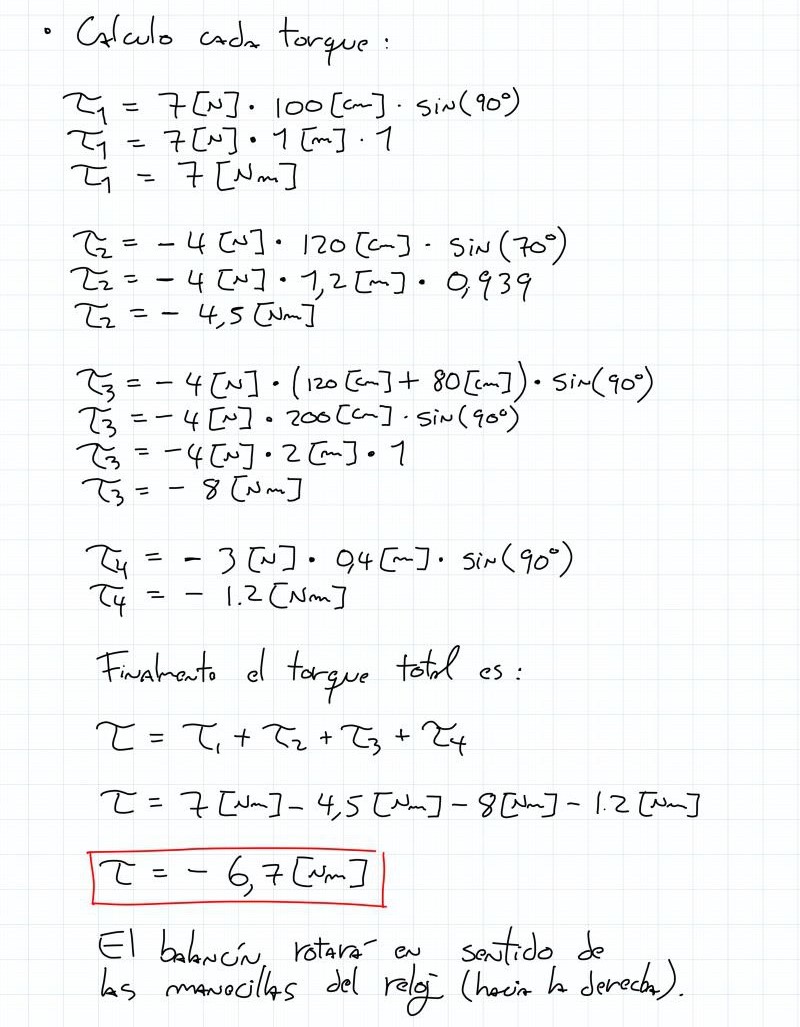 • Calculo cada torque:
τ₁ = 7[N] · 100[cm] · sin(90°)
τ₁ = 7[N] · 1[m] · 1
τ₁ = 7[Nm]
τ₂ = - 4[N] · 120[cm] · sin(70°)
τ₂ = - 4[N] · 1,2[m] · 0,939
τ₂ = - 4,5[Nm]
τ₃ = - 4[N] · (120[cm] + 80[cm]) · sin(90°)
τ₃ = - 4[N] · 200[cm] · sin(90°)
τ₃ = - 4[N] · 2[m] · 1
τ₃ = - 8[Nm]
τ₄ = - 3[N] · 0,4[m] · sin(90°)
τ₄ = - 1.2[Nm]
Finalmente el torque total es:
τ = τ₁ + τ₂ + τ₃ + τ₄
τ = 7[Nm] - 4,5[Nm] - 8[Nm] - 1.2[Nm]
τ = - 6,7[Nm]
El balancín rotará en sentido de
las manecillas del reloj (hacia la derecha).